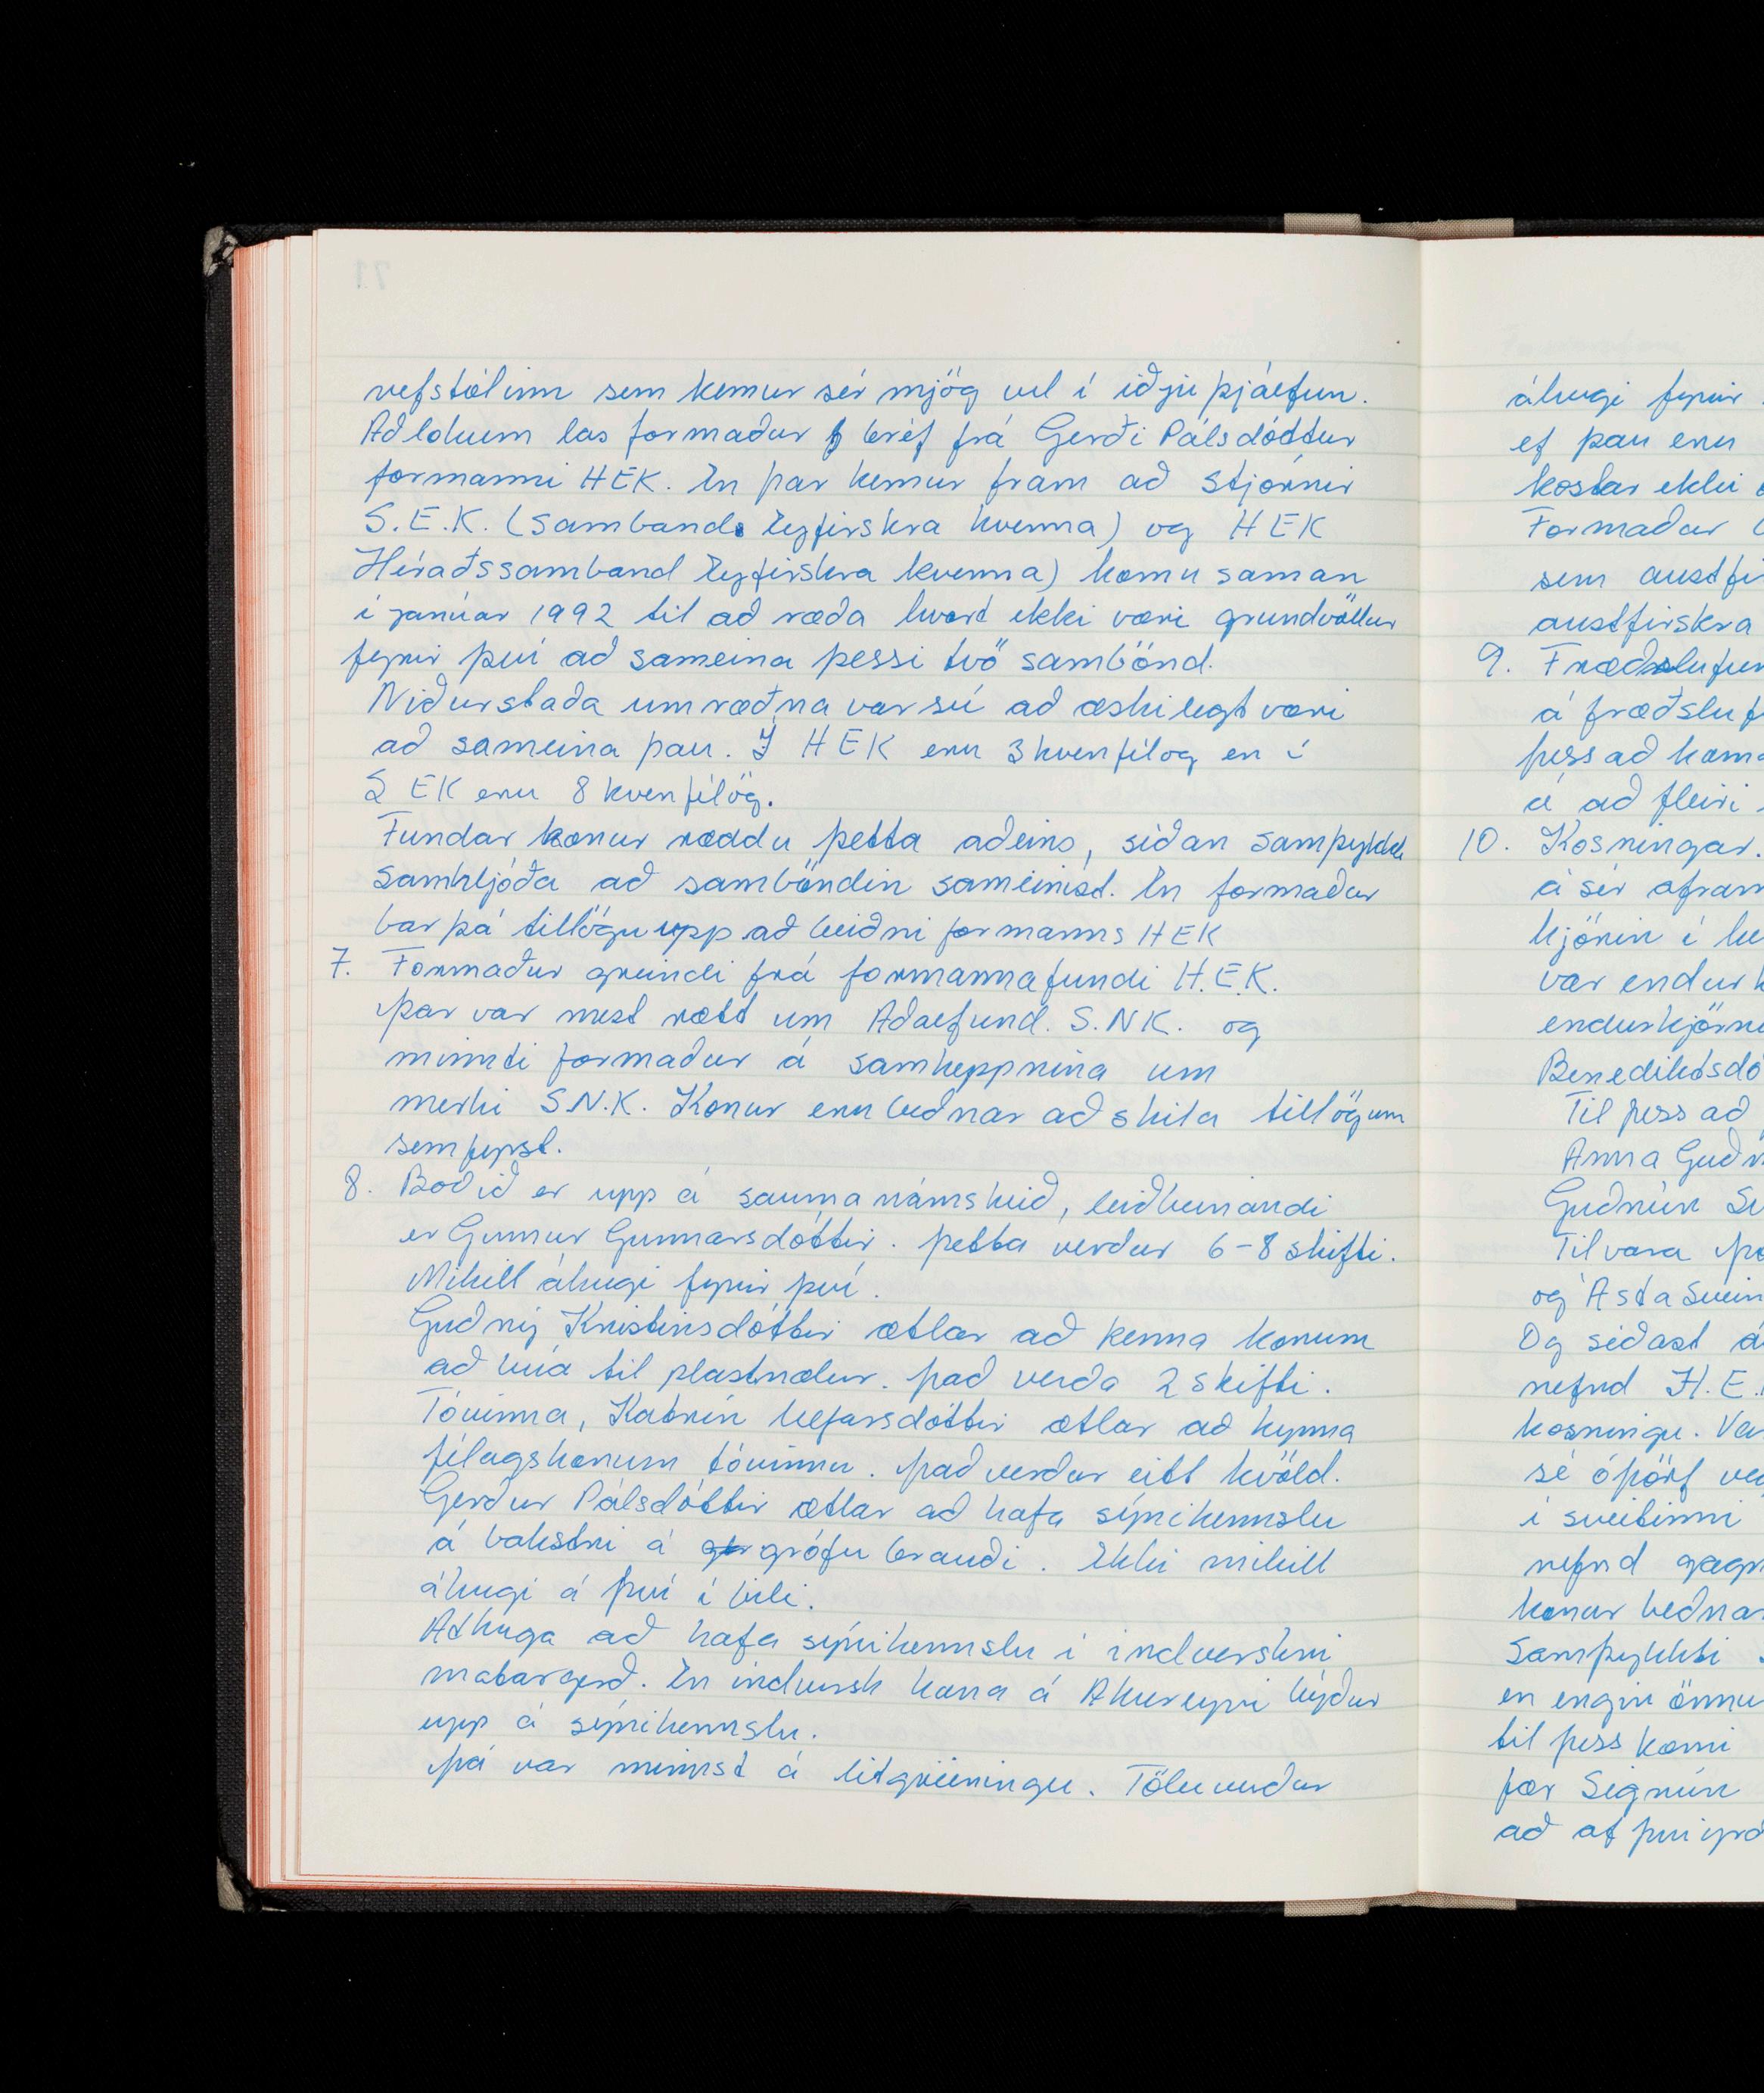 vefstólinn sem kemur sér mjög vel í iðjuþjálfun.
Að lokum las formaður bréf frá Gerði Pálsdóttur
formanni HEK. En þar kemur fram að stjórnir
S.E.K. (Samband Eyfirskra kvenna) og HEK
Héraðssamband Eyfirskra kvenna) komu saman
í janúar 1992 til að ræða hvort ekki væri grundvöllur
fyrir því að sameina þessi tvö sambönd.
Niðurstaða umræðna var sú að æskilegt væri
að sameina þau. Í HEK eru 3 kvenfélög en í
SEK eru 8 kvenfélög.
Fundar konur ræddu þetta aðeins, síðan samþykkt
samhljóða að samböndin sameinist. En formaður
bar þá tillögu upp að beiðni formanns HEK
7. Formaður greindi frá formannafundi H.E.K.
þar var mest rætt um Aðalfund. S.NK. og
minnti formaður á samkeppnina um
merki S.N.K. Konur eru beðnar að skila tillögum
sem fyrst.
8. Boðið er upp á saumanámskeið, leiðbeinandi
er Gunnur Gunnarsdóttir. þetta verður 6-8 skifti.
Mikill áhugi fyrir því.
Guðný Kristinsdóttir ætlar að kenna konum
að búa til plastnælur. það verða 2 skifti.
Tóvinna, Katrín Úlfarsdóttir ætlar að kynna
félagskonum tóvinnu. það verður eitt kvöld.
Gerður Pálsdóttir ætlar að hafa sýnikennslu
á bakstri á grófu brauði. Ekki mikill
áhugi á því í bili.
Athuga að hafa sýnikennslu í indverskri
matargerð. En indversk kona á Akureyri býður
upp á sýnikennslu.
þá var minnst á litgreiningu. Töluverður
áhugi fyrir
ef þau eru
kostar ekki
Formaður
sem austfi
austfirskra
9. Fræðslufun
á fræðsluf
þess að koma
á að fleiri
10. Kosningar.
á sér áfram
kjörin í
var endurk
endurkjörn
Benediktsdó
Til þess að
Anna Guð
Guðrún
Til vara
og Ásta Svein
Og síðast á
nefnd H.E.
kosningu. Va
sé óþörf
í sveitinni
nefnd gagn
konur beðna
Samþykkti
en engin önnu
til þess kæmi
fær Sigrún
að af því